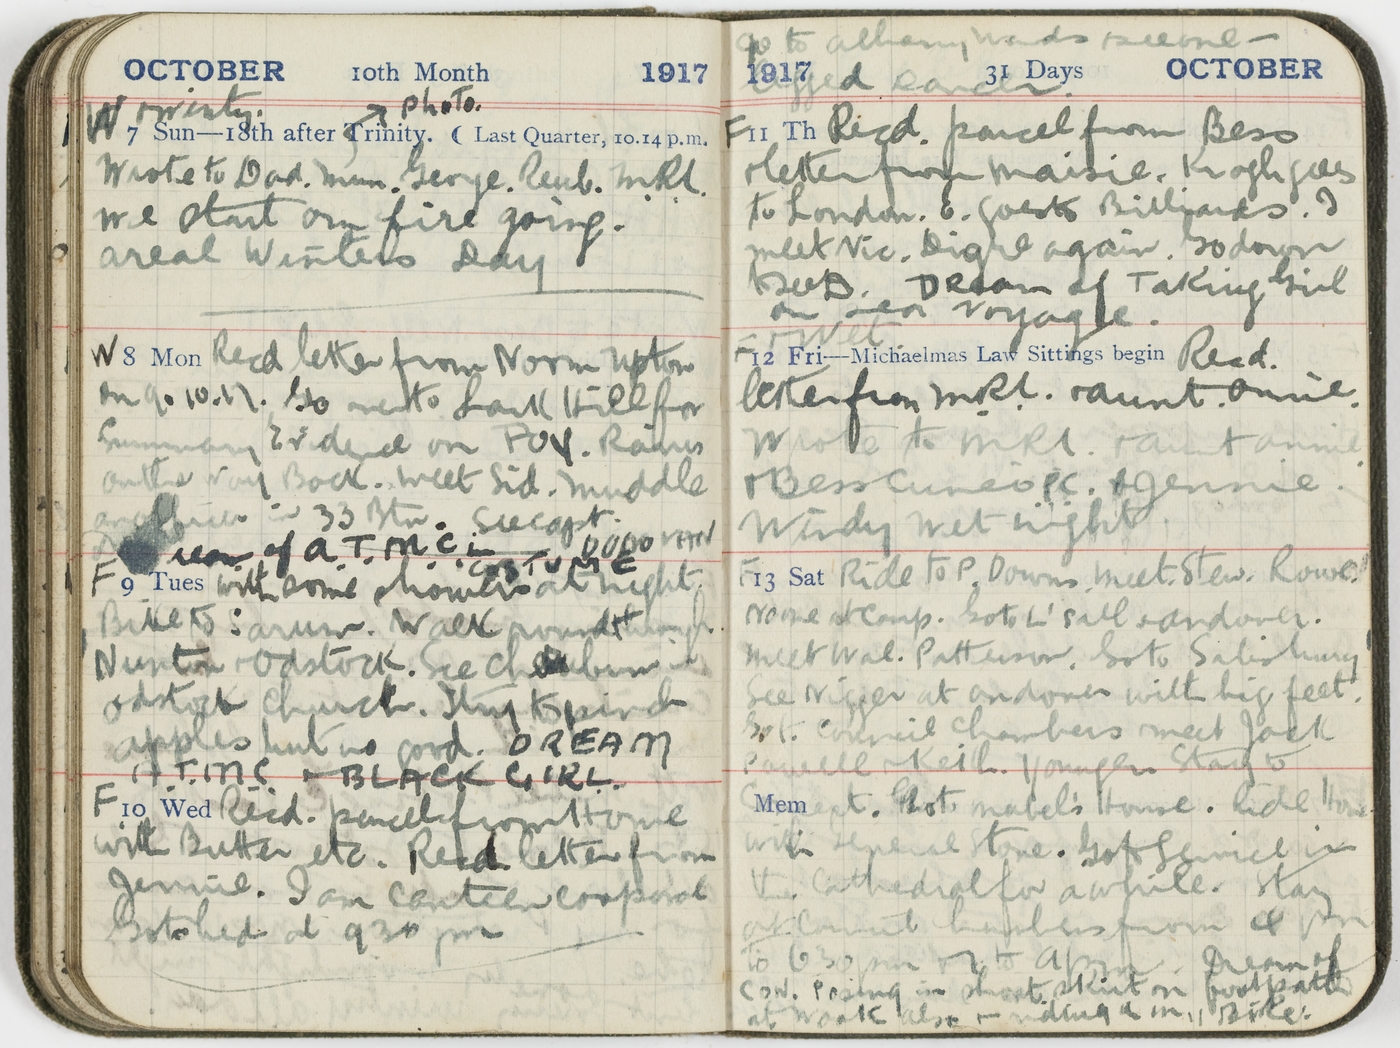 OCTOBER 10th Month 1917
W wintry. photo.
7 Sun—18th after Trinity. ☾ Last Quarter, 10.14 p.m.
Wrote to Dad. Mum. George. Reub. MRL.
We start our fire going.
a real Winters Day
W 8 Mon Recd letter from Norm Upton
on 9.10.17. Go over to Lark Hill for
Summary Evidence on FOX. Rains
on the way Back. Meet Sid. Muddle
in 33 Btn. See Capt.
of a T.M.C. in COSTUME
F 9 Tues with some showers at night.
Bike to Sarum. Walk round through
Nunton & Odstock. See
Odstock Church. Try to pinch
apples but no good. DREAM
T.M.C. & BLACK GIRL.
F 10 Wed Recd. parcel from Home
with Butter etc. Recd letter from
Jennie. I am canteen corporal
Got to bed at 930 pm
go to albany wards
legged
1917 31 Days OCTOBER
F 11 Th Recd. parcel from Bess
& letter from Maisie. Krogh goes
to London. Billiards. I
meet Vic. Digre again. Go down
to see B. Dream of Taking Girl
on sea voyage.
F & Wet.
12 Fri—Michaelmas Law Sittings begin Recd.
letter from MRL. & aunt. annie.
Wrote to MRL. & aunt annie
& Bess Cuneo pc. & Jennie.
Windy wet night
F 13 Sat Ride to P. Downs. Meet. Stew. Rowe.
None at Camp. Go to L'sall & andover.
Meet Wal. Patterson. Go to Salisbury
See Nigger at andover with big feet!
Go to Council Chambers meet Jack
Powell & Keith. Youngers Stay to
Mem Go to Mabel's House. Ride Home
with General Stone. Go to Service in
the Cathedral for a while. Stay
at Council Chambers from pm
to 630 pm to 9 pm. Dream of
in short skirt on footpath
at work also riding in Bike.